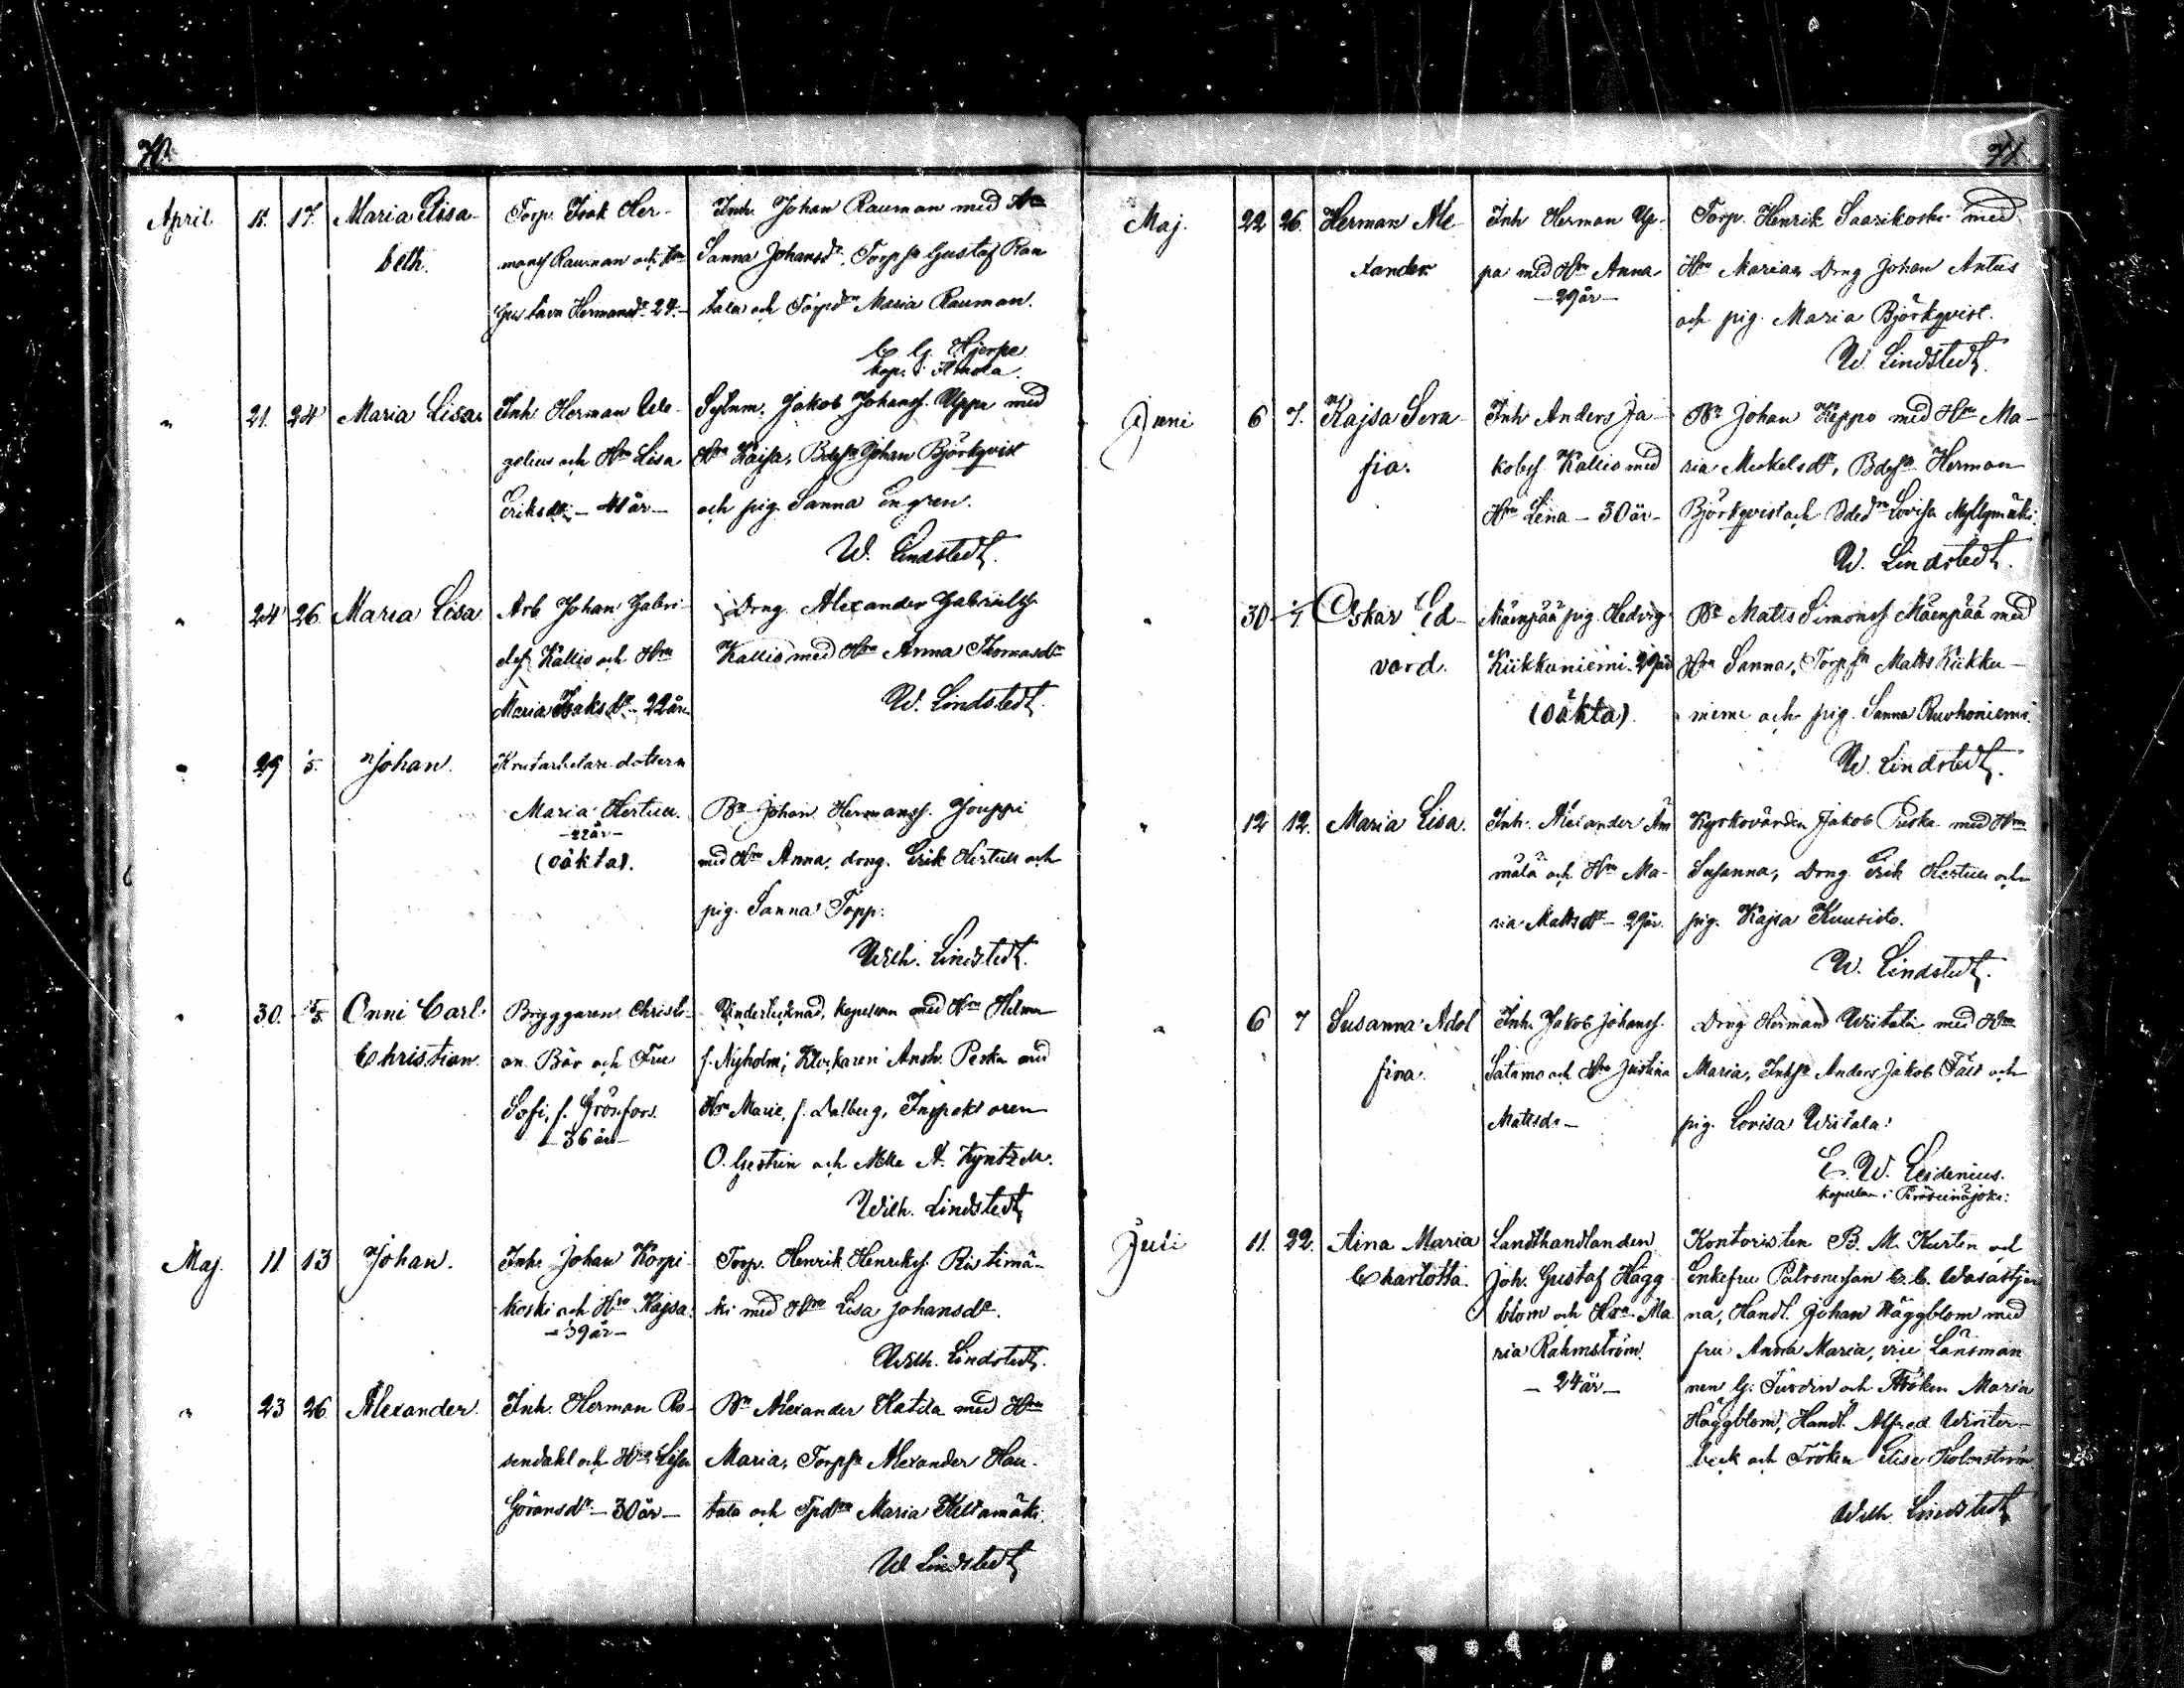 70.
April 11. 17. Maria Elisa-
beth.
Torp. Isak Her-
manss Rauman och Hn
Gustava Hermansdr 24.-
Inh. Johan Rauman med Hn
Sanna Johansdr. Torpsn Gustaf Ran
tala och Torpdn Maria Rauman.
C. G. Hjerpe
kap. i
" 21. 24 Maria Lisa.
Inh. Herman
gelius och Hn Lisa
Eriksdr - 41 år -
Sytnm. Jakob Johanss. Uppa med
Hn Kajsa, Bdesn Johan Björkqvist
och pig. Sanna Engren.
W. Lindstedt.
" 24 26 Maria Lisa
Arb Johan Gabri-
elss Kallio och Hn
Maria Isaksdr - 22 år
Dräng. Alexander Gabrielss
Kallio med Hn Anna Thomasdr
W. Lindstedt.
" 29 5. Johan.
dottern
Maria Hertua.
- 22 år -
(oäkta).
Bn Johan Hermanss. Jouppi
med Hn Anna, dräng. Erik Hertua och
pig. Sanna Topp.
Wilh. Lindstedt.
" 30. 5. Onni Carl
Christian.
Bryggaren Christi-
an Bär och Fru
Sofi, f. Grönfors.
- 36 år -
Undertecknad, kapellan med Hn Hilma
f. Nyholm; Klockaren Andr. Peska med
Hn Marie, f. Dalberg, Inspektoren
O. Gestrin och Mlle A. Kyntzell.
Wilh. Lindstedt
Maj. 11 13 Johan.
Inh. Johan Korpi-
koski och Hn Kajsa.
- 39 år -
Torp. Henrik Henrikss. Ristimä-
ki med Hn Lisa Johansdr.
Wilh. Lindstedt.
" 23 26 Alexander.
Inh. Herman Ro-
sendahl och Hn Lisa
Göransdr - 30 år -
Bn Alexander Hatila med Hn
Maria, Torpsn Alexander Hau-
tala och Tpdn Maria Keltamäki.
W Lindstedt
71.
Maj. 22 26. Herman Ale-
xander
Inh Herman Up-
pa med Hn Anna
- 29 år -
Torp. Henrik Saarikoski med
Hn Maria, Dräng Johan Antus
och pig. Maria Björkqvist.
W. Lindstedt.
Juni 6 7. Kajsa Sera-
fia.
Inh Anders Ja-
kobss Kallio med
Hn Lena - 30 år -
Bn Johan Keppo med Hn Ma-
ria Mickelsdr, Bdesn Herman
Björkqvist och Bdedn Lovisa Myllymäki.
W. Lindstedt.
" 30 Oskar Ed-
vard.
Mäenpää pig. Hedvig
Kiikkuniemi. 29 år
(oäkta).
Bn Matts Simonss. Mäenpää med
Hn Sanna, Torpsn Matts Kiikku-
niemi och pig. Sanna Ruohoniemi.
W. Lindstedt.
" 12 12. Maria Lisa.
Inh. Alexander Äm
mälä och Hn Ma-
ria Mattsdr - 29 år.
Kyrkovärden Jakob Puska med Hn
Susanna, Dräng Erik Hertua och
pig. Kajsa Kuusisto.
W. Lindstedt.
" 6 7 Susanna Adol
fina.
Inh. Jakob Johanss.
Satamo och Hn Justina
Mattsdr -
Dräng Herman Wiitala med Hn
Maria, Inhsn Anders Jakob Fält och
pig. Lovisa Wiitala.
E. W. Leidenius.
kapellan i Peräseinäjoki.
Juli 11. 22. Aina Maria
Charlotta.
Landthandlanden
Joh. Gustaf Hägg
blom och Hn Ma
ria Rahmström.
- 24 år -
Kontoristen B. M. Kurtén och
Enkefru C. C. Wasastjer
na, Handl. Johan Häggblom med
fru Anna Maria, vice Länsman
nen G. och Fröken Maria
Häggblom, Handl. Alfred Winter-
beck och Fröken Elise Holmström.
Wilh. Lindstedt